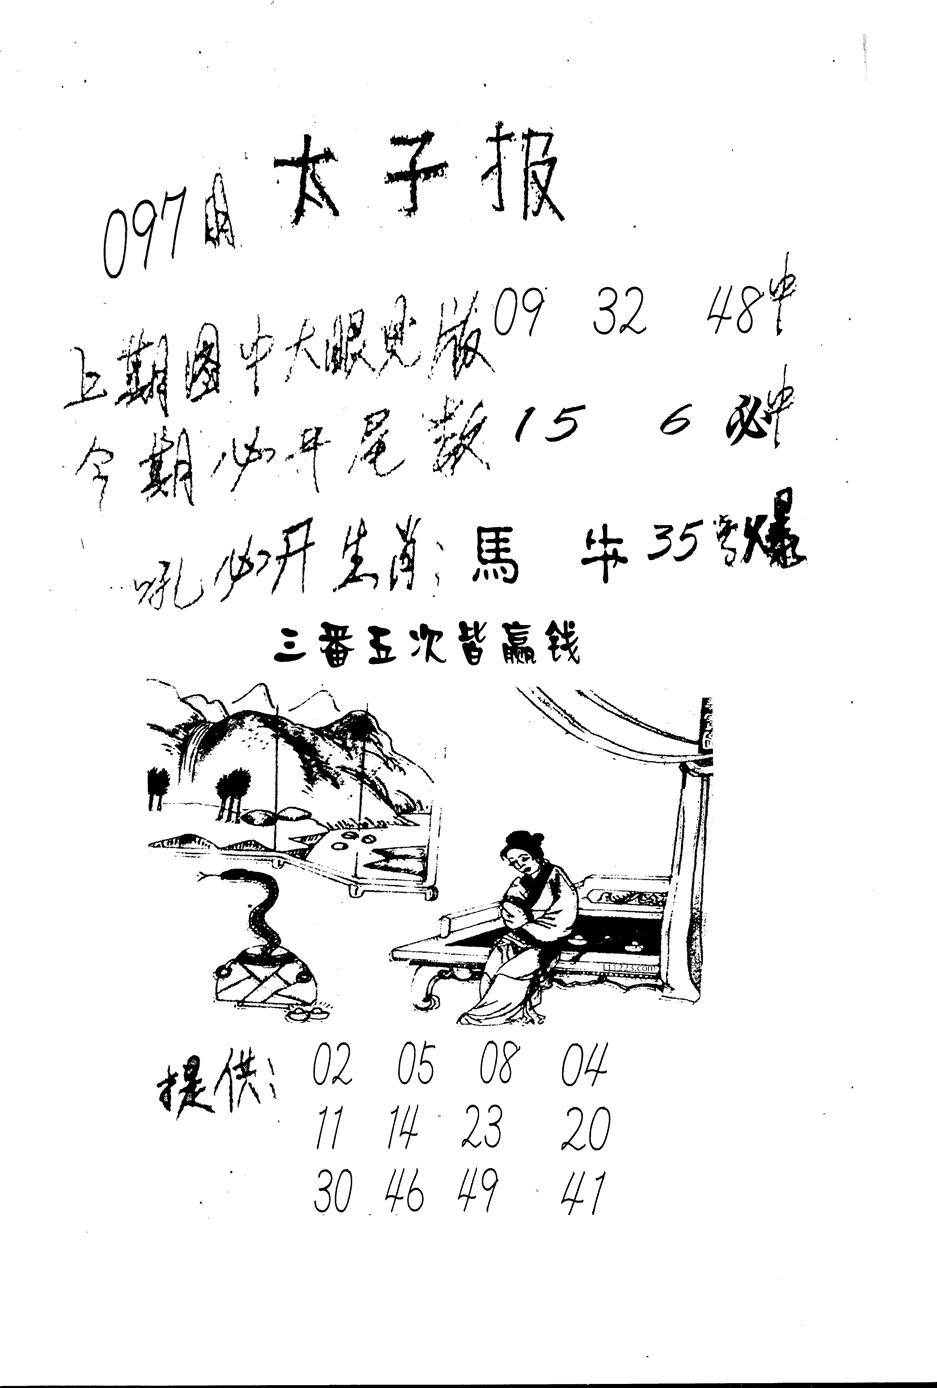 太子报
097期
上期图中大眼见版09 32 48中
今期必开尾数15 6必中
吼必开生肖:馬 牛35号爆
三番五次皆赢钱
提供:02 05 08 04
11 14 23 20
30 46 49 41